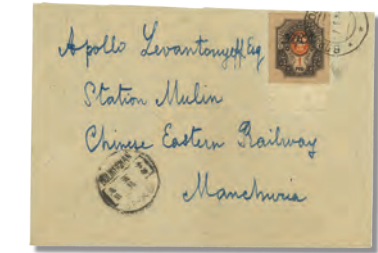 Apollo Levantovzeff Esq
Station Mulin
Chinese Eastern Railway
Manchuria